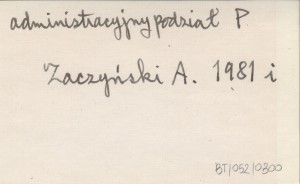 administracyjny podział P
Zaczyński A. 1981 i
BT/052/0300